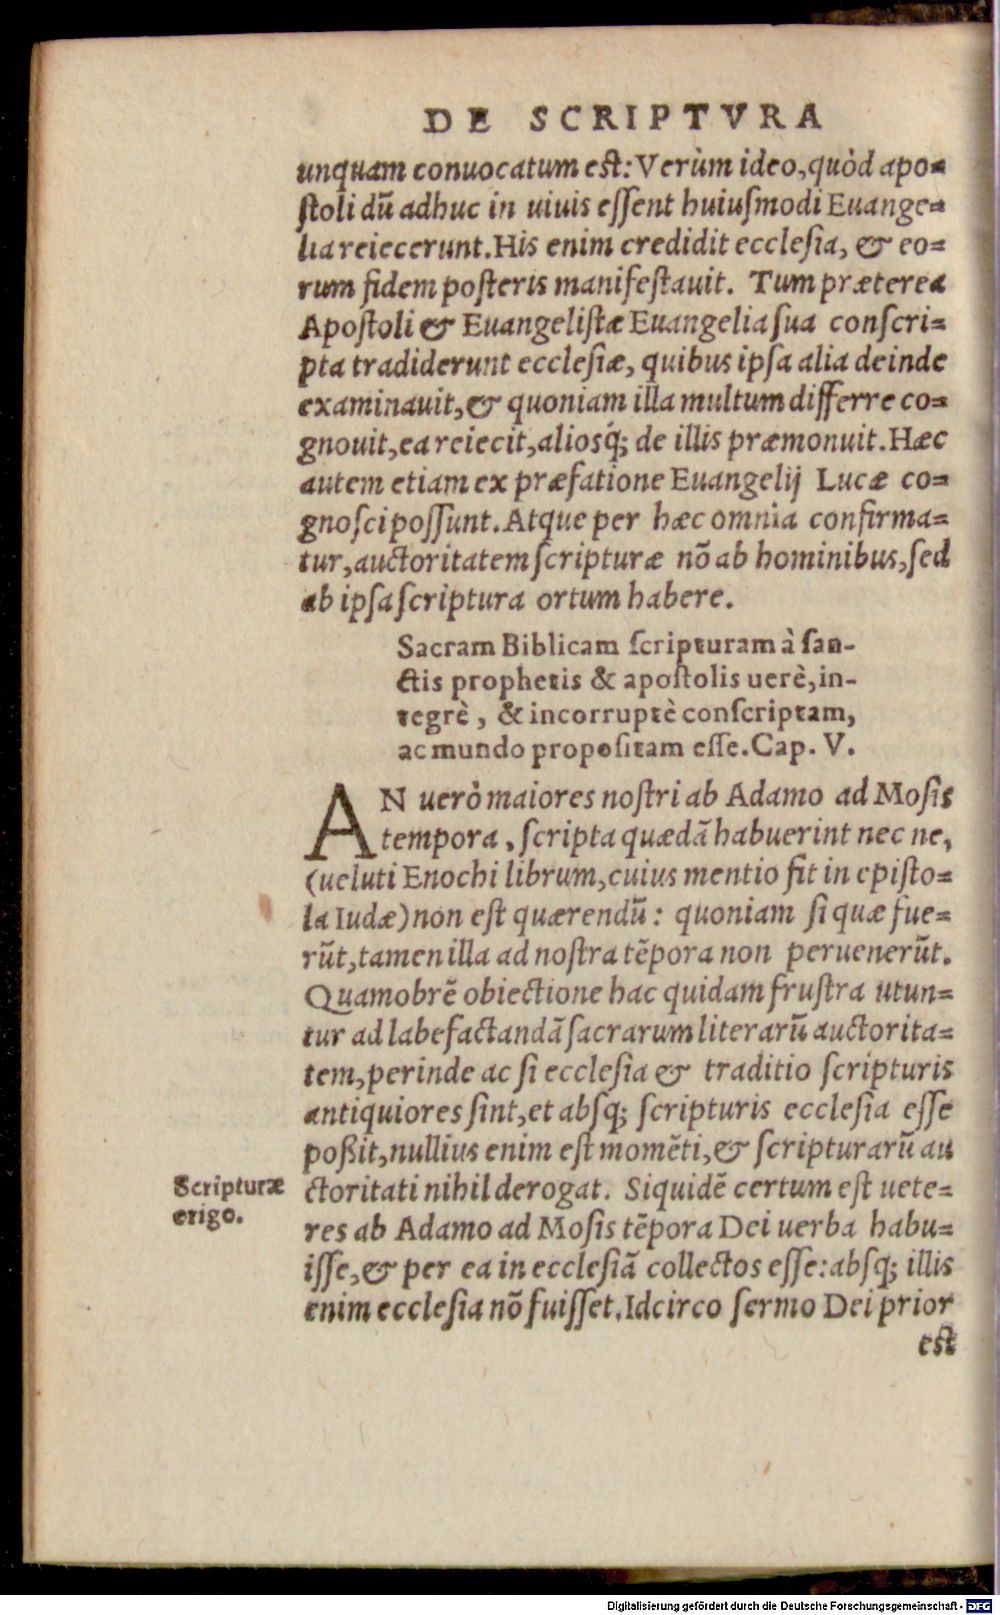 DE SCRIPTVRA
unquam conuocatum est: Verùm ideo, quòd apo=
ſtoli dũ adhuc in uiuis eſſent huiuſmodi Euange=
lia reiecerunt. His enim credidit eccleſia, & eo=
rum fidem poſteris manifeſtauit. Tum præterea
Apoſtoli & Euangeliſtæ Euangelia ſua conſcri=
pta tradiderunt eccleſiæ, quibus ipſa alia deinde
examinauit, & quoniam illa multum differre co=
gnouit, ea reiecit, alioſq́; de illis præmonuit. Hæc
autem etiam ex præfatione Euangelij Lucæ co=
gnoſci poſſunt. Atque per hæc omnia confirma=
tur, auctoritatem ſcripturæ nõ ab hominibus, ſed
ab ipſa ſcriptura ortum habere.
Sacram Biblicam ſcripturam à ſan-
ctis prophetis & apoſtolis uerè, in-
tegrè, & incorruptè conſcriptam,
ac mundo propoſitam eſſe. Cap. V.
AN uerò maiores noſtri ab Adamo ad Moſis
tempora, ſcripta quædã habuerint nec ne,
(ueluti Enochi librum, cuius mentio fit in epiſto=
la Iudæ) non eſt quærendũ: quoniam ſi quæ fue=
rũt, tamen illa ad noſtra tẽpora non peruenerũt.
Quamobrẽ obiectione hac quidam fruſtra utun=
tur ad labefactandã ſacrarum literarũ auctorita=
tem, perinde ac ſi eccleſia & traditio ſcripturis
antiquiores ſint, et abſq; ſcripturis eccleſia eſſe
poßit, nullius enim eſt momẽti, & ſcripturarũ au
ctoritati nihil derogat. Siquidẽ certum eſt uete=
res ab Adamo ad Moſis tẽpora Dei uerba habu=
iſſe, & per ea in eccleſiã collectos eſſe: abſq; illis
enim eccleſia nõ fuiſſet. Idcirco ſermo Dei prior
est
Scripturæ
origo.
Digitalisierung gefördert durch die Deutsche Forschungsgemeinschaft - DFG